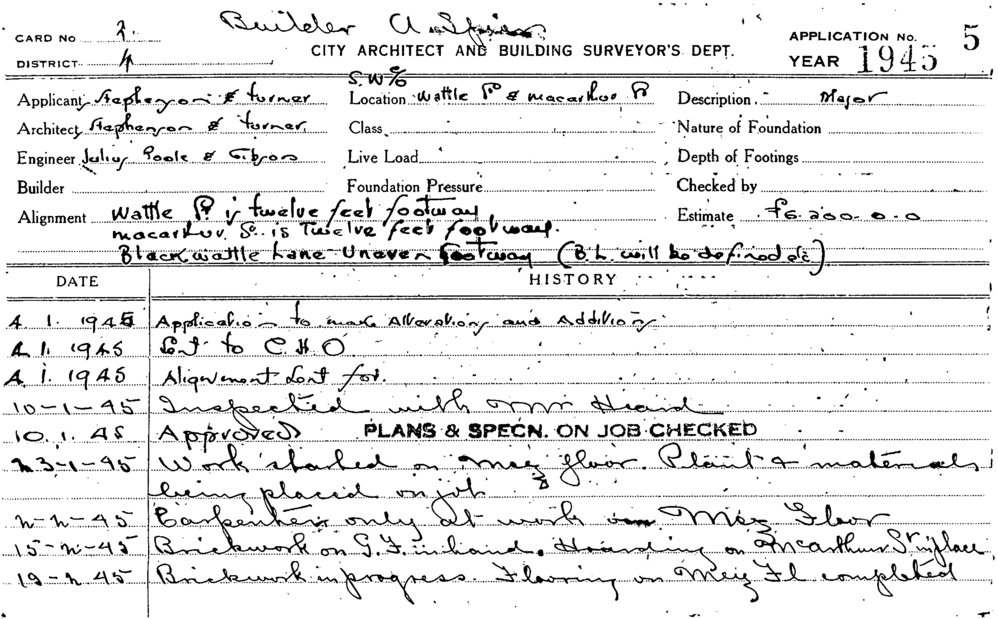 Builder A. Spiers
CARD No 2.
DISTRICT 4
CITY ARCHITECT AND BUILDING SURVEYOR'S DEPT.
APPLICATION No. 5
YEAR 1945
Applicant Stephenson & Turner
S.W c/o
Location Wattle St & Macarthur St
Description Major
Architect Stephenson & Turner
Class
Nature of Foundation
Engineer Julius Poole & Gibson
Live Load
Depth of Footings
Builder
Foundation Pressure
Checked by
Alignment Wattle St is twelve feet footway
Macarthur St. is Twelve feet footway.
Blackwattle Lane Uneven footway (B.L. will be defined etc)
Estimate £6.200.0.0
DATE HISTORY
4 1. 1945 Application to make Alterations and Additions
4 1. 1945 Sent to C.H.O
4 1. 1945 Alignment Sent for.
10-1-45 Inspected with Mr Heard
10.1.45 Approved PLANS & SPECN. ON JOB CHECKED
23-1-45 Work started on Mezz floor. Plant & materials
being placed on job
2-2-45 Carpenters only at work on Mezz Floor
15-2-45 Brickwork on G.F. in hand. Hoarding on McArthur St in place
19-2-45 Brickwork in progress. Flooring on Mezz Fl completed